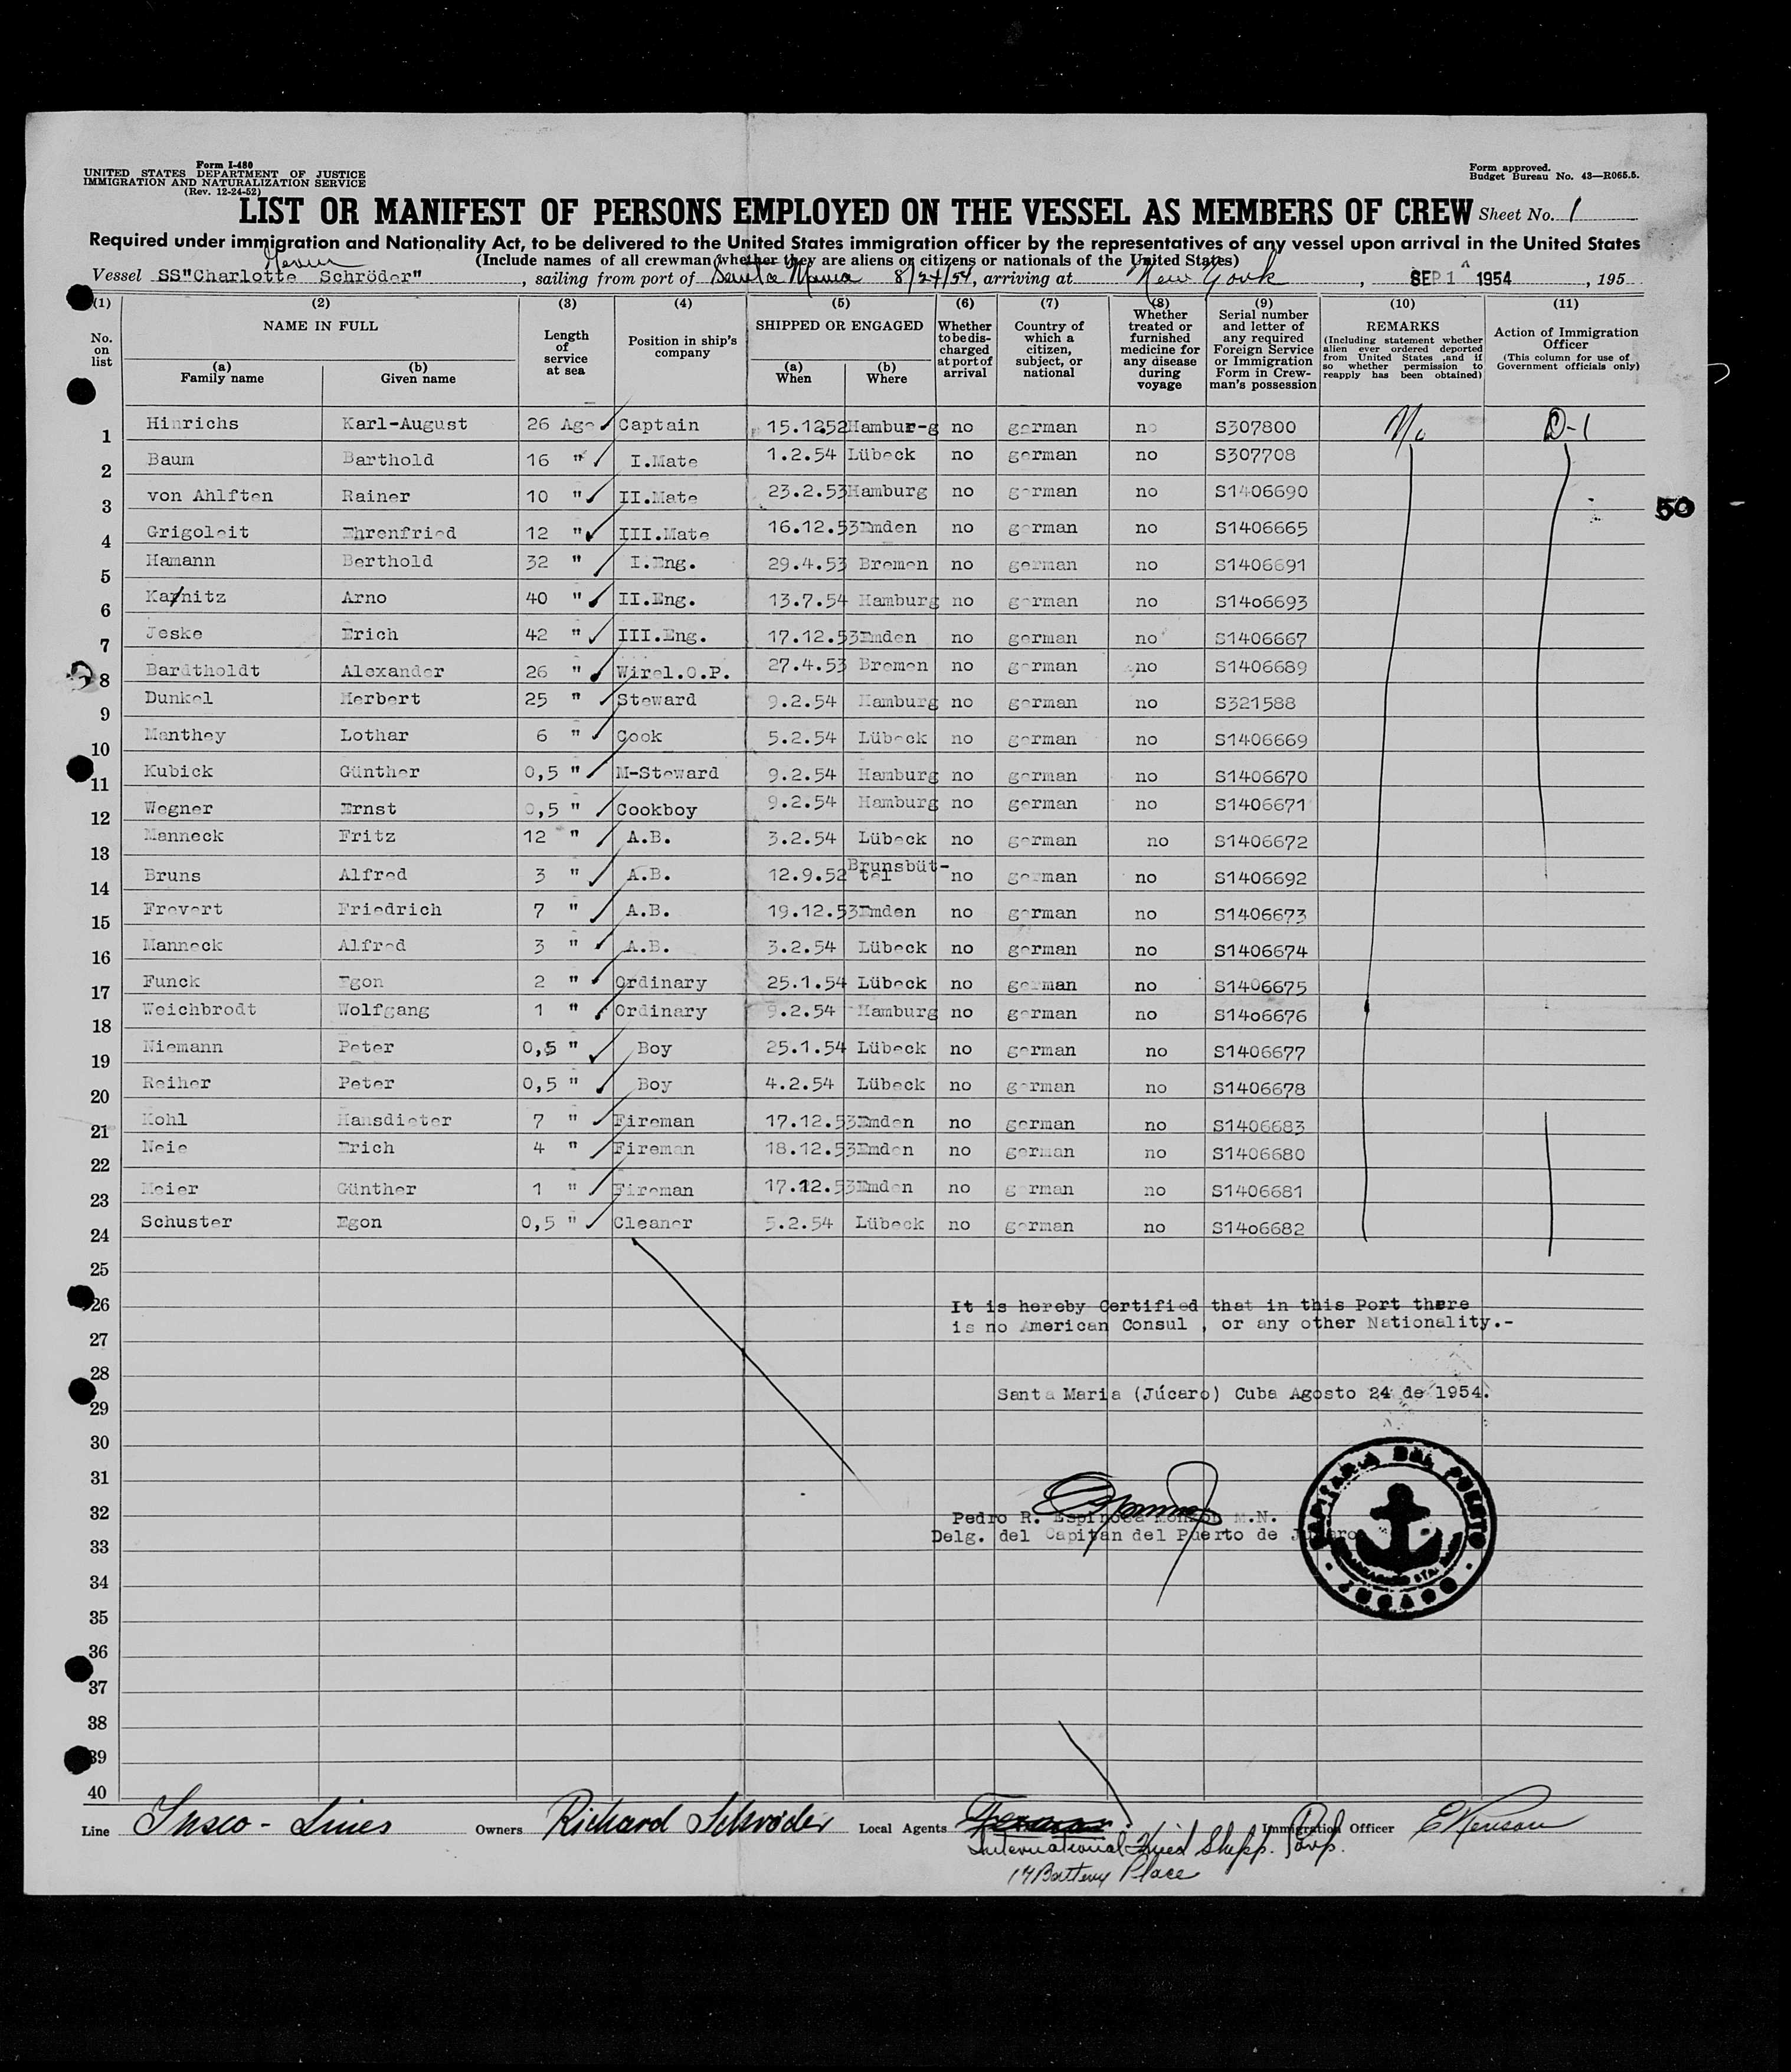 Form I-480
UNITED STATES DEPARTMENT OF JUSTICE
IMMIGRATION AND NATURALIZATION SERVICE
(Rev. 12-24-52)
Form approved.
Budget Bureau No. 43—R065.5.
LIST OR MANIFEST OF PERSONS EMPLOYED ON THE VESSEL AS MEMBERS OF CREW Sheet No. 1
Required under immigration and Nationality Act, to be delivered to the United States immigration officer by the representatives of any vessel upon arrival in the United States
(Include names of all crewman whether they are aliens or citizens or nationals of the United States)
Vessel SS"Charlotte Schröder", sailing from port of Santa Maria 8/24/54, arriving at New York, SEP 1 1954, 195
(1) (2) (3) (4) (5) (6) (7) (8) (9) (10) (11)
No. on list
NAME IN FULL
(a) Family name
(b) Given name
Length of service at sea
Position in ship's company
SHIPPED OR ENGAGED
(a) When
(b) Where
Whether to be discharged at port of arrival
Country of which a citizen, subject, or national
Whether treated or furnished medicine for any disease during voyage
Serial number and letter of any required Foreign Service or Immigration Form in Crewman's possession
REMARKS
(Including statement whether alien ever ordered deported from United States ,and if so whether permission to reapply has been obtained)
Action of Immigration Officer
(This column for use of Government officials only)
1 Hinrichs Karl-August 26 Age Captain 15.1252 Hambur-g no german no S307800 No D-1
2 Baum Barthold 16 " I.Mate 1.2.54 Lübeck no german no S307708
3 von Ahlften Rainer 10 " II.Mate 23.2.53 Hamburg no german no S1406690
50
4 Grigoleit Ehrenfried 12 " III.Mate 16.12.53 Emden no german no S1406665
5 Hamann Berthold 32 " I.Eng. 29.4.53 Bremen no german no S1406691
6 Karnitz Arno 40 " II.Eng. 13.7.54 Hamburg no german no S14o6693
7 Jeske Erich 42 " III.Eng. 17.12.53 Emden no german no S1406667
8 Bardtholdt Alexander 26 " Wirel.O.P. 27.4.53 Bremen no german no S1406689
9 Dunkel Herbert 25 " Steward 9.2.54 Hamburg no german no S321588
10 Manthey Lothar 6 " Cook 5.2.54 Lübeck no german no S1406669
11 Kubick Günther 0,5 " M-Steward 9.2.54 Hamburg no german no S1406670
12 Wegner Ernst 0,5 " Cookboy 9.2.54 Hamburg no german no S1406671
13 Manneck Fritz 12 " A.B. 3.2.54 Lübeck no german no S1406672
14 Bruns Alfred 3 " A.B. 12.9.52 Brunsbüt-tel no german no S1406692
15 Frevert Friedrich 7 " A.B. 19.12.53 Emden no german no S1406673
16 Manneck Alfred 3 " A.B. 3.2.54 Lübeck no german no S1406674
17 Funck Egon 2 " Ordinary 25.1.54 Lübeck no german no S1406675
18 Weichbrodt Wolfgang 1 " Ordinary 9.2.54 Hamburg no german no S14o6676
19 Niemann Peter 0,5 " Boy 25.1.54 Lübeck no german no S1406677
20 Reiher Peter 0,5 " Boy 4.2.54 Lübeck no german no S1406678
21 Kohl Hansdieter 7 " Fireman 17.12.53 Emden no german no S1406683
22 Neie Erich 4 " Fireman 18.12.53 Emden no german no S1406680
23 Meier Günther 1 " Fireman 17.12.53 Emden no german no S1406681
24 Schuster Egon 0,5 " Cleaner 5.2.54 Lübeck no german no S14o6682
25
26 It is hereby Certified that in this Port there
27 is no American Consul , or any other Nationality.-
28
29 Santa Maria (Júcaro) Cuba Agosto 24 de 1954.
30
31
32 Pedro R. Espinosa Monzon M.N.
33 Delg. del Capitan del Puerto de Jucaro
CAPITANIA DEL PUERTO
JUCARO
34
35
36
37
38
39
40
Line Insco - Lines Owners Richard Schröder Local Agents Immigration Officer
International Shipp. Corp.
17 Battery Place